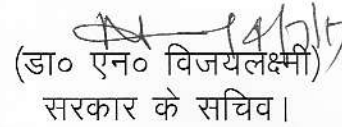 (डा० एन० विजयलक्ष्मी)
सरकार के सचिव।